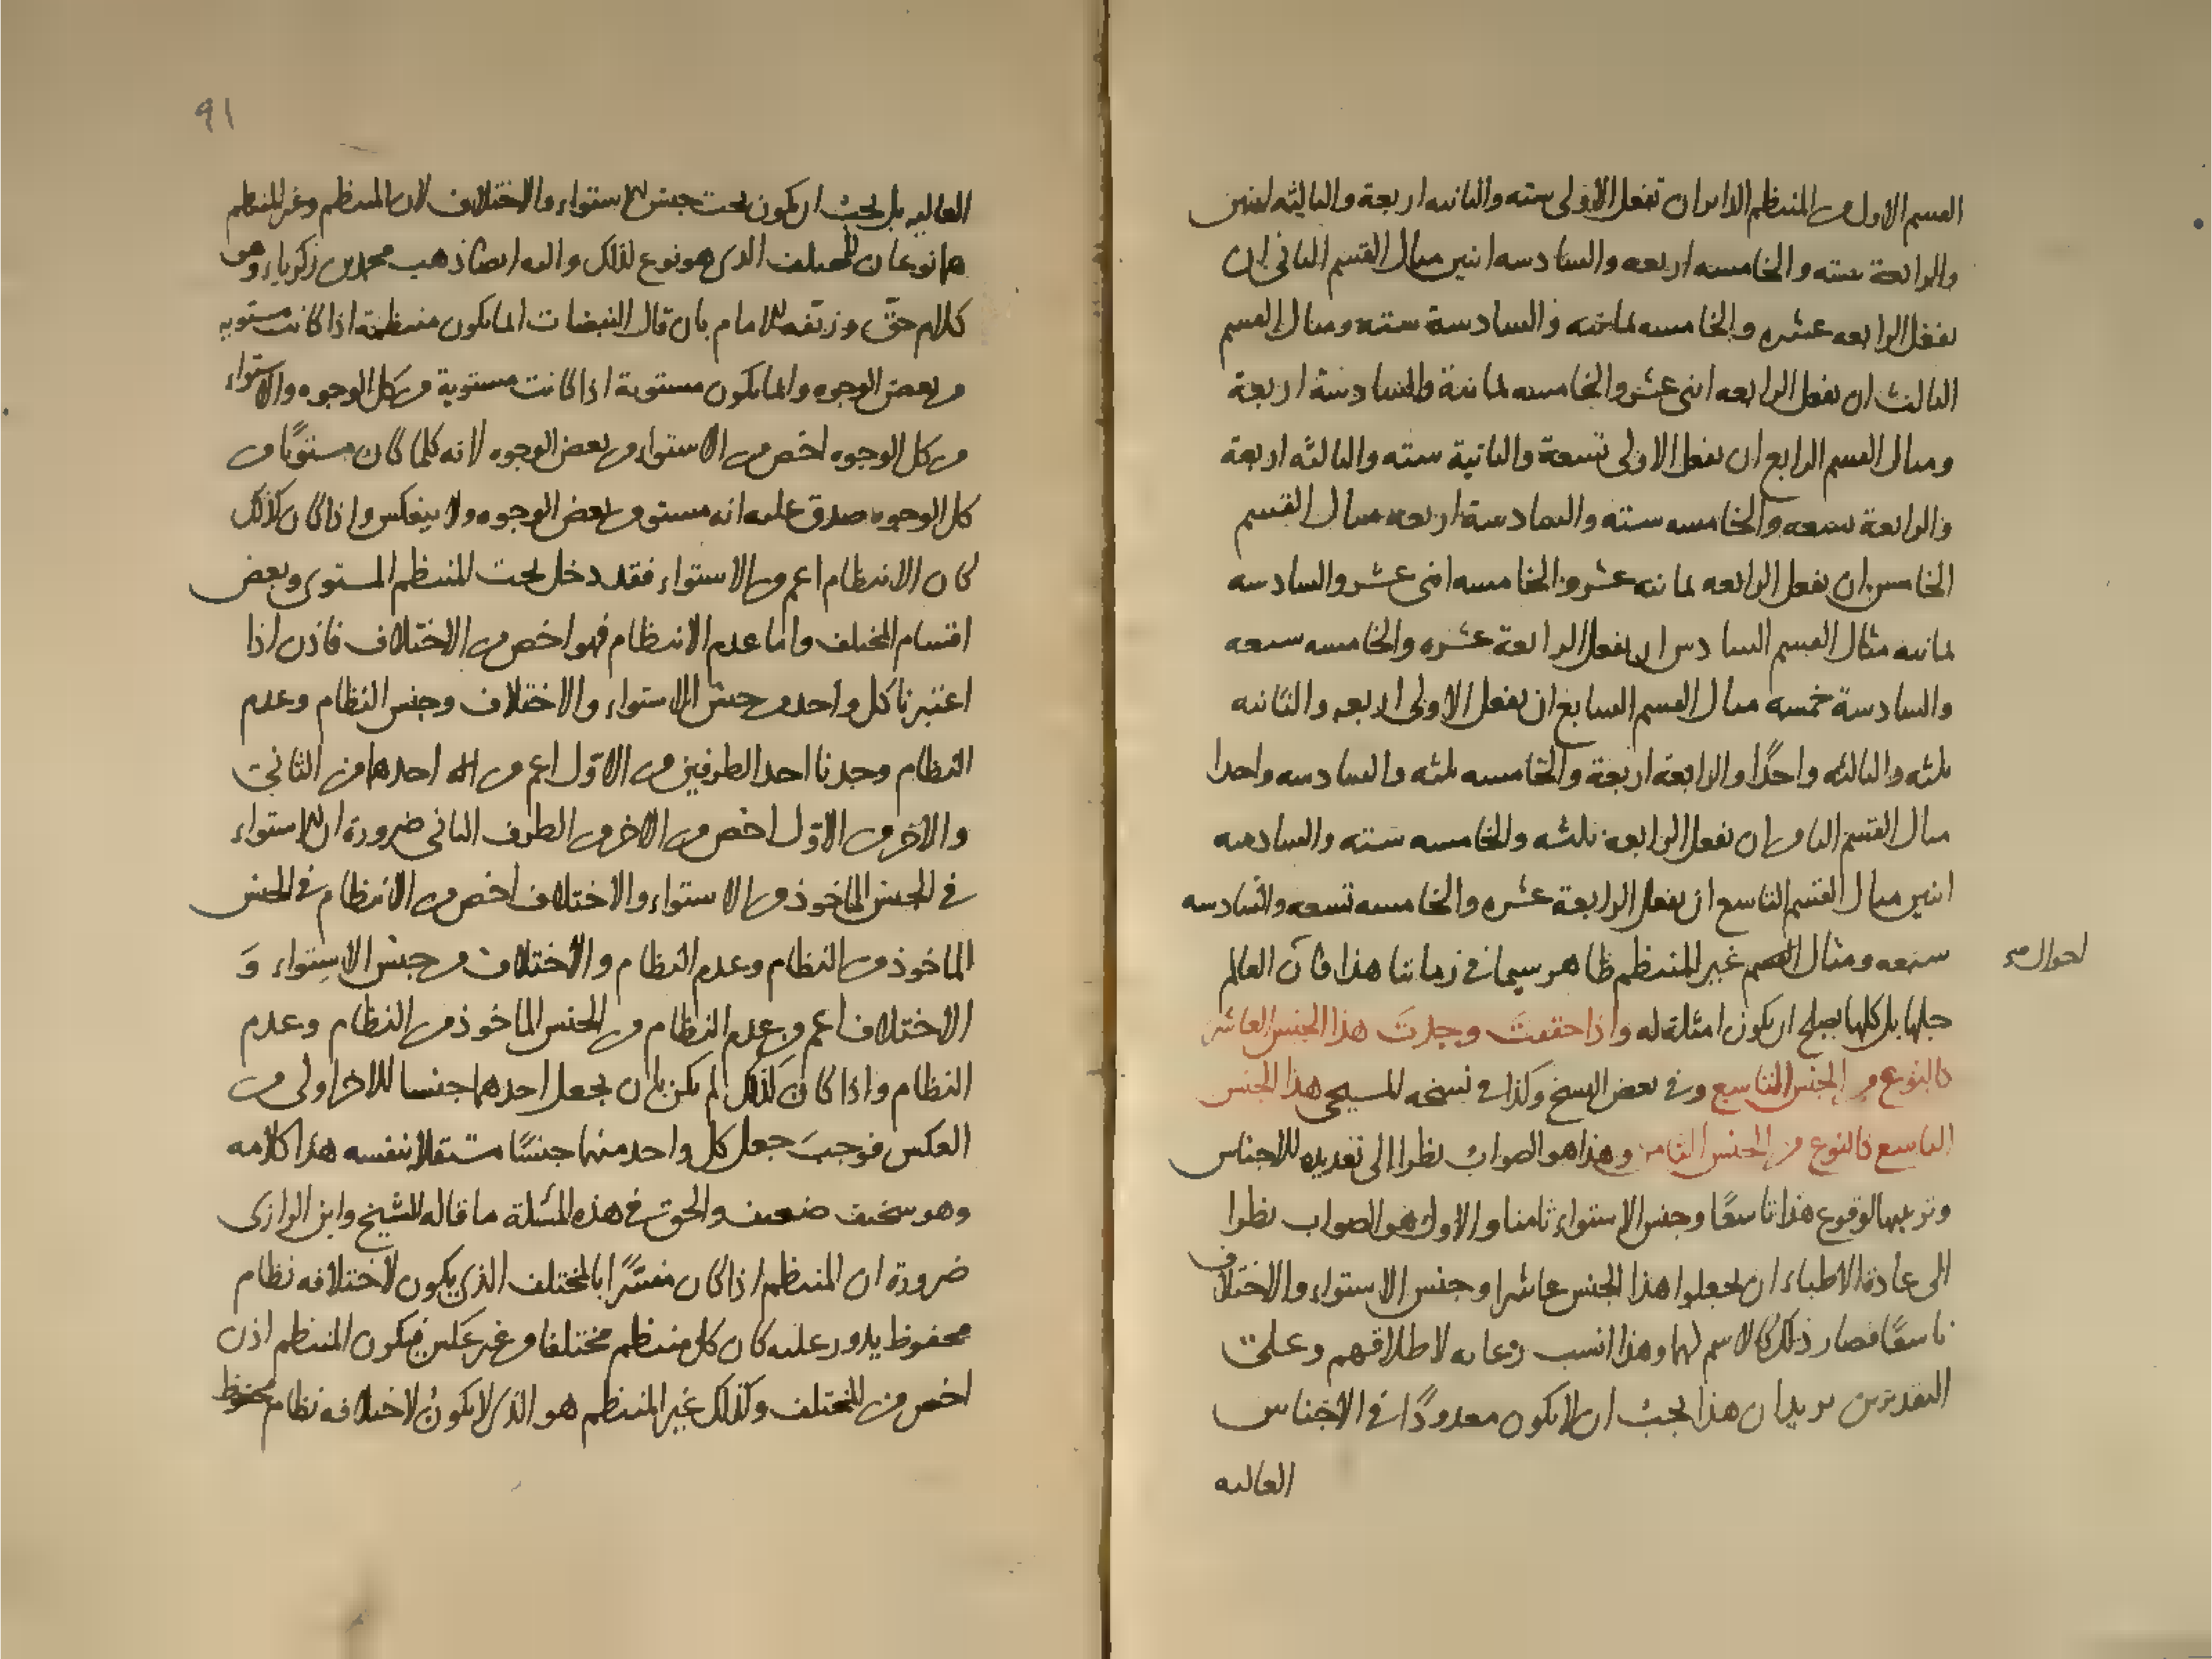 القسم الاول من المنتظم الداير ان تفعل الاولى سته والثانيه اربعة والثالثه اثنين
والرابعة سته والخامسه اربعه والسادسه اثنين مثال القسم الثاني ان
تفعل الرابعه عشره والخامسه ثمانيه والسادسة سته ومثال القسم
الثالث ان تفعل الرابعه اثنى عشر والخامسه ثمانية والسادسة اربعة
ومثال القسم الرابع ان تفعل الاولى تسعة والثانية سته والثالثه اربعة
والرابعة تسعه والخامسه سته والسادسة اربعه مثال القسم
الخامس ان تفعل الرابعه ثمانيه عشر والخامسه اثنى عشر والسادسه
ثمانيه مثال القسم السادس ان تفعل الرابعة عشره والخامسه سبعه
والسادسة خمسه مثال القسم السابع ان تفعل الاولى اربعه والثانيه
ثلثه والثالثه واحدًا والرابعة اربعة والخامسه ثلثه والسادسه واحدا
مثال القسم الثامن ان تفعل الرابعه ثلثه والخامسه سته والسادسه
اثنين مثال القسم التاسع ان تفعل الرابعة عشره والخامسه تسعه والسادسه
سبعه ومثال القسم غير المنتظم ظاهر سيما في زماننا هذا فان العالم
احوال
جلها بل كلها يصلح ان يكون امثلة له واذا حققتَ وجدتَ هذا الجنس العاشر
كالنوع من الجنس التاسع وفي بعض النسخ وكذا في نسخه المسيحي هذا الجنس
التاسع كالنوع من الجنس الثامن وهذا هو الصواب نظرا الى تعديده للاجناس
وترتيبها لوقوع هذا تاسعًا وجنس الاستواء ثامنا والاول هو الصواب نظرا
الى عادة الاطباء ان يجعلوا هذا الجنس عاشرا وجنس الاستواء والاختلاف
تاسعًا فصار ذلك كالاسم لهما وهذا انسب رعايه لاطلاقهم وعلى
التقديرين يريد ان هذا يجب ان لا يكون معدودًا في الاجناس
العاليه
٩١
العاليه بل يجب ان يكون تحت جنس الاستواء والاختلاف لان المنتظم وغير المنتظم
هما نوعان للمختلف الذى هو نوع لذلك واليه ايضا ذهب محمد بن زكرياء وهو
كلام حق وزيفه الامام بان قال النبضات انما يكون منتظمة اذا كانت مستويه
من بعض الوجوه وانما يكون مستوية اذا كانت مستوية من كل الوجوه والاستواء
من كل الوجوه اخص من الاستواء من بعض الوجوه لانه كلما كان مستويًا من
كل الوجوه صدق عليه انه مستو من بعض الوجوه ولا ينعكس واذا كان كذلك
كان الانتظام اعم من الاستواء فقد دخل تحت المنتظم المستوى وبعض
اقسام المختلف واما عدم الانتظام فهو اخص من الاختلاف فاذن اذا
اعتبرنا كل واحد من جنس الاستواء والاختلاف وجنس النظام وعدم
النظام وجدنا احد الطرفين من الاوّل اعم من احدهما من الثاني
والاخر من الاوّل اخص من الاخر من الطرف الثانى ضرورة ان الاستواء
في الجنس الماخوذ من الاستواء والاختلاف اخص من الانتظام في الجنس
الماخوذ من النظام وعدم النظام والاختلاف من جنس الاستواء وَ
الاختلاف اعم من عدم النظام من الجنس الماخوذ من النظام وعدم
النظام واذا كان كذلك لم يكن بان يجعل احدهما جنسا للاخر اولى من
العكس فوجبَ جعل كل واحد منهما جنسًا مستقلا بنفسه هذا كلامه
وهو سخيف ضعيف والحق في هذه المسئلة ما قاله الشيخ وابن الرازى
ضرورة ان المنتظم اذا كان مفسرًا بالمختلف الذى يكون لاختلافه نظام
محفوظ يدور عليه كان كل منتظم مختلفا من غير عكس فيكون المنتظم اذن
اخص من المختلف وكذلك غير المنتظم هو الذى لا يكون لاختلافه نظام محفوظ